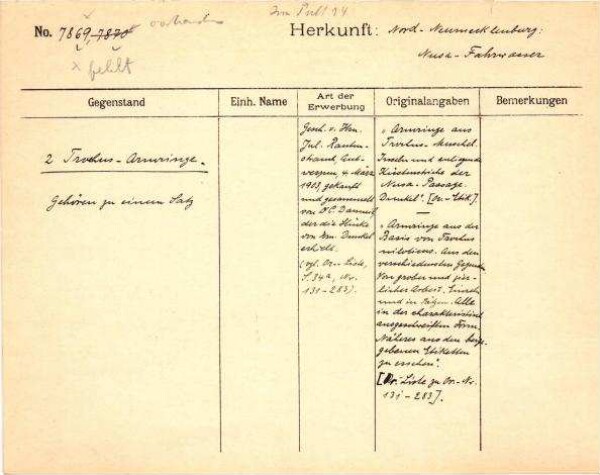 Im Pult 14
vorhanden
No. 7869, 7870
x fehlt
Herkunft: Nord-Neumecklenburg:
Nusa-Fahrwasser
Gegenstand
Einh. Name
Art der Erwerbung
Originalangaben
Bemerkungen
2 Trochus-Armringe.
Gehören zu einem Satz
Gesch. v. Hrn.
Jul. Rauten-
strauch, Ant-
werpen, 4. März
1903, gekauft
und gesammelt
von
der die Stücke
von Hrn. Dunckel
erhielt.
(vgl. Or.-Liste,
S. 34a, Nr.
131-283).
"Armringe aus
Trochus-Muschel.
Inseln und
der
Nusa-Passage.
Dunckel". [Or.-Etik].
—
"Armringe aus der
Basis von Trochus
niloticus. Aus den
verschiedensten Gegenden
Von grober und zier-
licher Arbeit, Einzeln
und in Sätzen. Alle
in der charakteristisch
ausgeschweiften Form.
Näheres aus den beige-
gebenen Etiketten
zu ersehen".
[Or.-Liste zu Or.-Nr.
131-283].